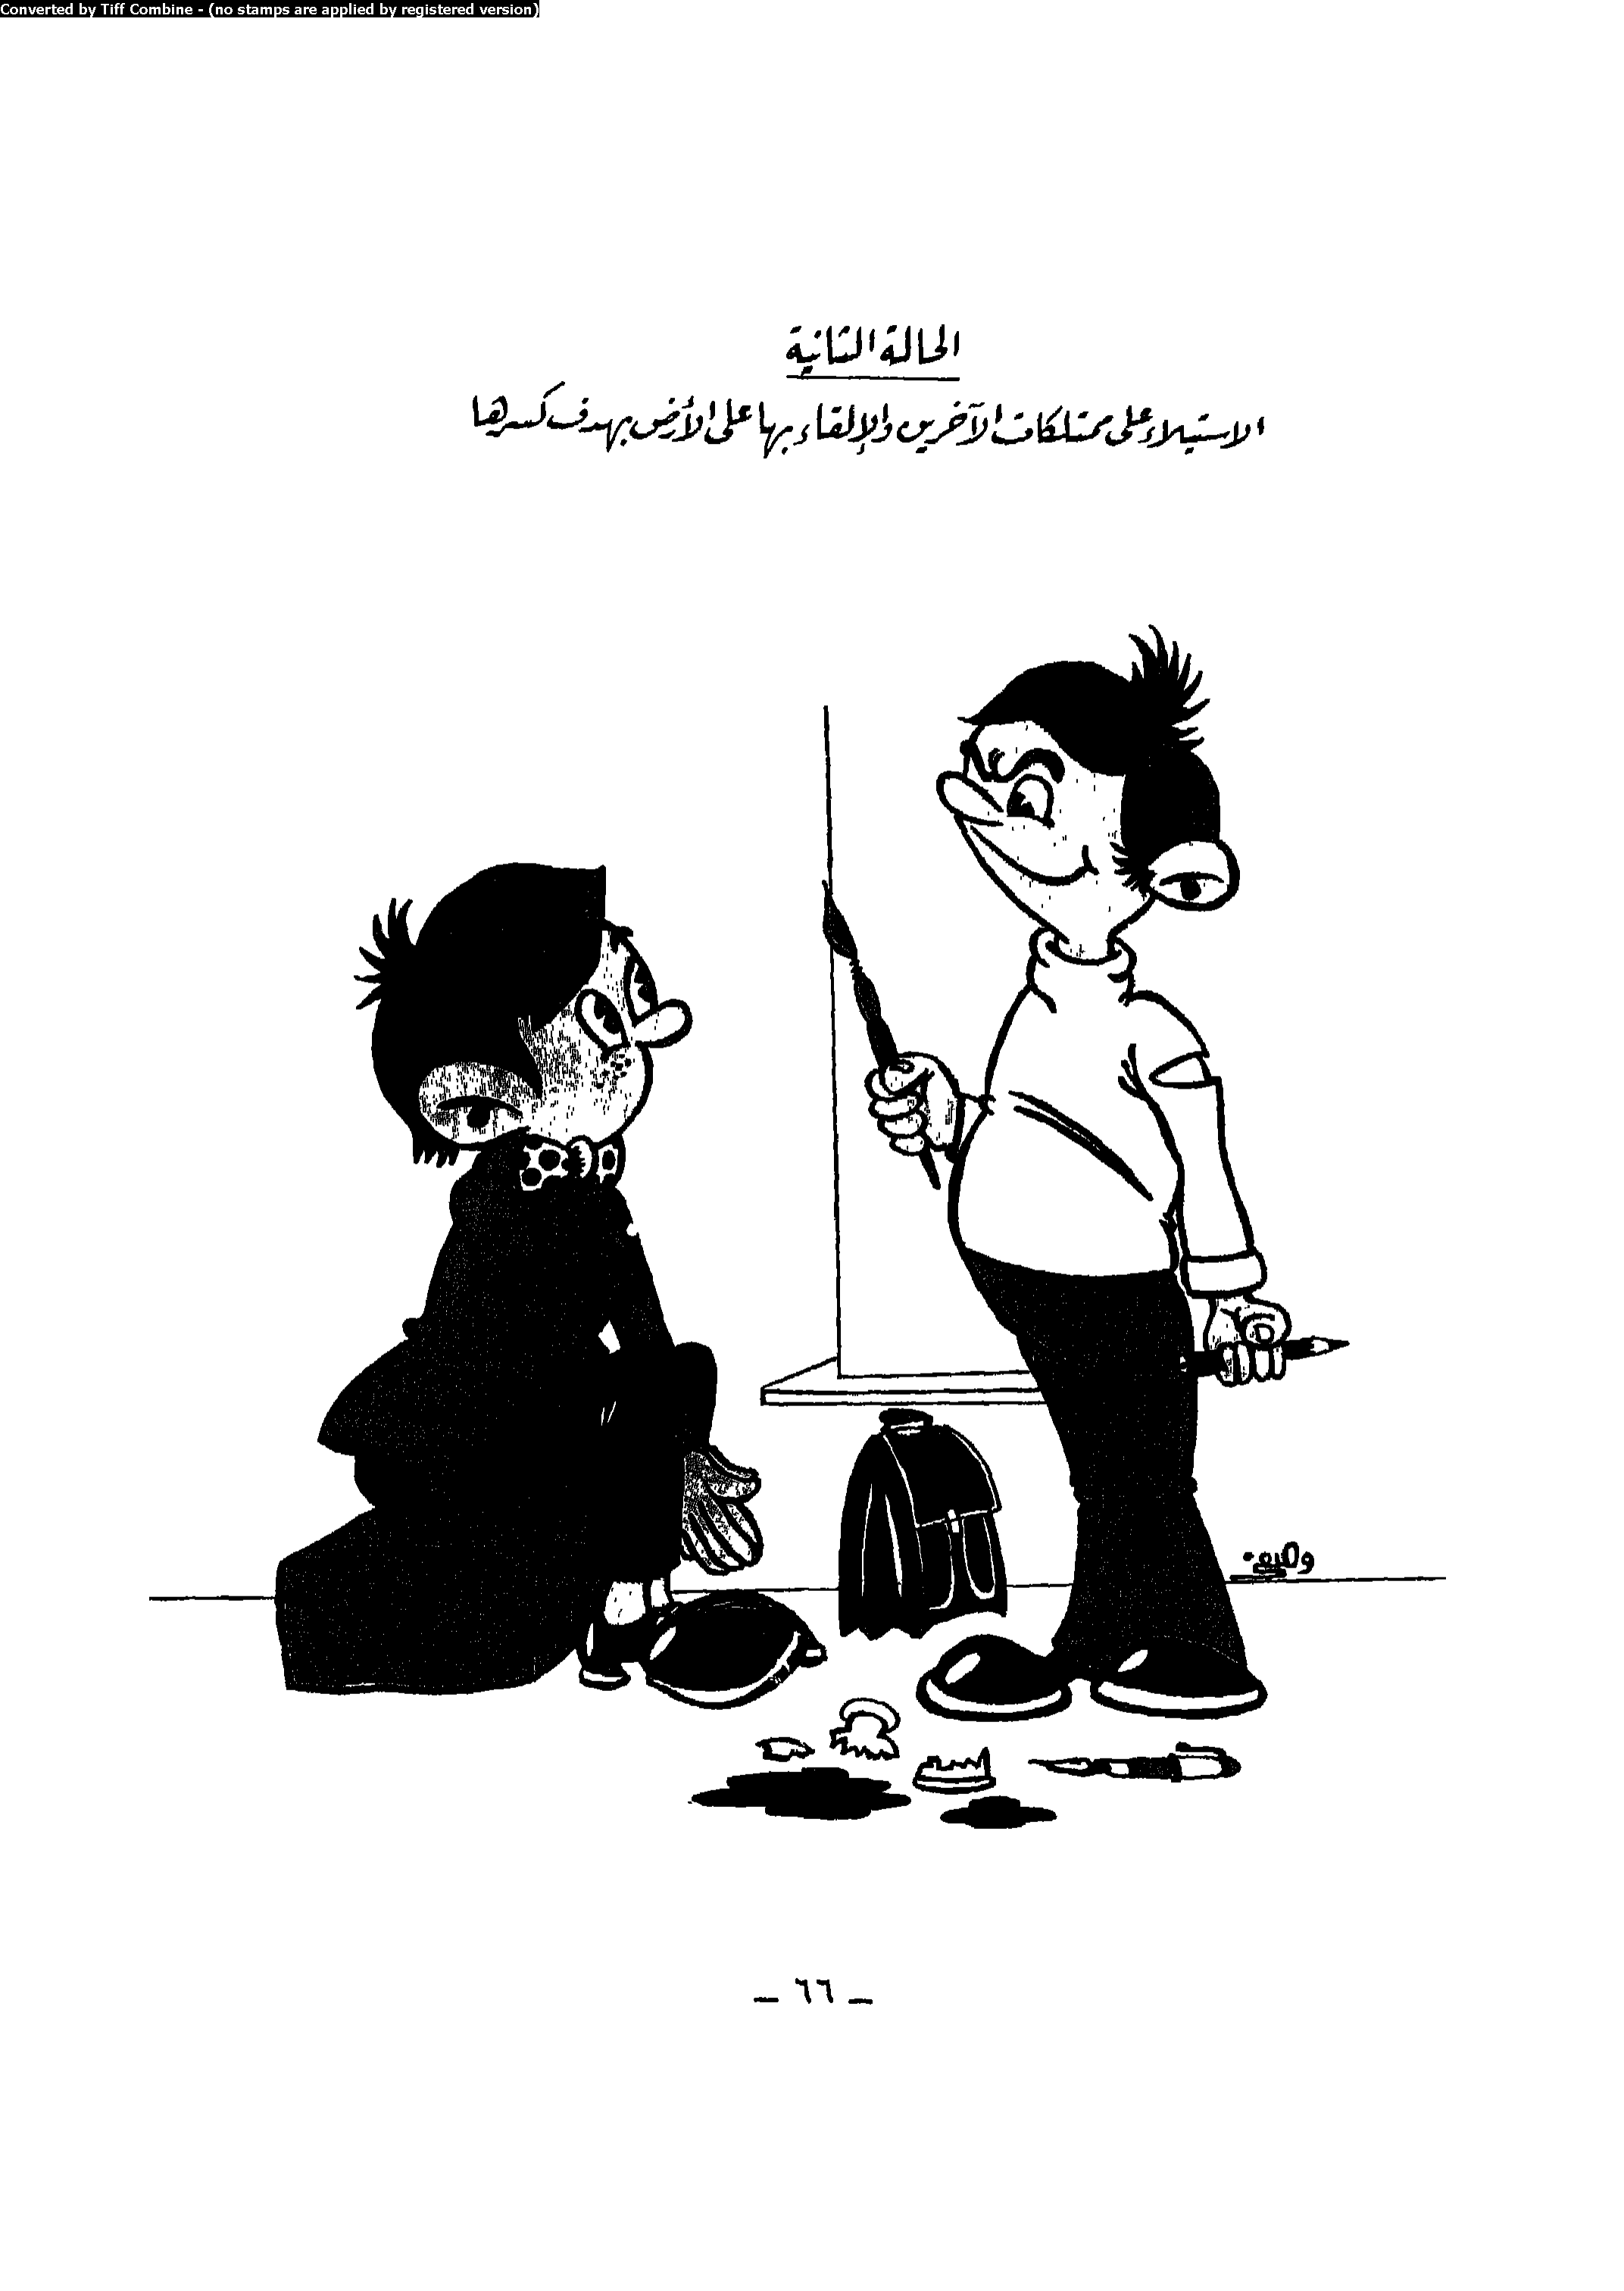 Converted by Tiff Combine - (no stamps are applied by registered version)
الحالة الثانية
الاستيلاء على ممتلكات الآخرين والإلقاء بها على الأرض بهدف كسرها
— ٦٦ —